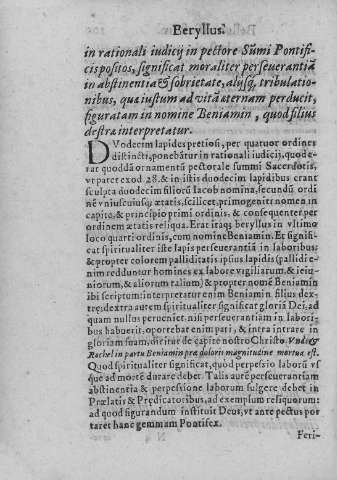 Beryllus.
in rationali iudicij in pectore Sũmi Pontifi-
cis positos, significat moraliter perseuerantiã
in abstinentia & sobrietate, alijsq́, tribulatio-
nibus, qua iustum ad vitã æternam perducit,
figuratam in nomine Beniamin, quod filius
destra interpretatur.
DVodecim lapides pretiosi, per quatuor ordines
distincti, ponebãtur in rationali iudicij, quod e-
rat quoddã ornamentũ pectorale summi Sacerdotis,
vt paret exod. 28. & in istis duodecim lapidibus erant
sculpta duodecim filiorũ Iacob nomina, secundũ ordi
nẽ vniuscuiusq; ætatis, scilicet, primogeniti nomen in
capite, & principio primi ordinis, & consequenter per
ordinem ætatis reliqua. Erat itaq; beryllus in vltimo
loco quarti ordinis, cum nomine Beniamin. Et signifi-
cat spiritualiter iste lapis perseuerantiã in laboribus;
& propter colorem palliditatis ipsius lapidis (pallidi e-
nim redduntur homines ex labore vigiliarum, & ieiu-
niorum, & aliorum talium) & propter nomẽ Beniamin
ibi scriptum: interpretatur enim Beniamin filius dex-
træ; dextra autem spiritualiter significat gloriã Dei, ad
quam nullus peruenict, nisi perseuerantiam in labori-
bus habuerit, oportebat enim pati, & intra intrare in
gloriam suam, dicitur de capite nostro Christo. Vnde &
Rachel in partu Beniamin præ doloris magnitudine mortua est.
Quod spiritualiter significat, quod perpessio laborũ vs
que ad mortẽ durare debet. Talis aurẽ perseuerantiam
abstinentia & perpessione laborum fulgere debet in
Prælatis & Prędicatoribus, ad exemplum reliquorum:
ad quod figurandum instituit Deus, vt ante pectus por
taret hanc gemmam Pontifex.
Feri-